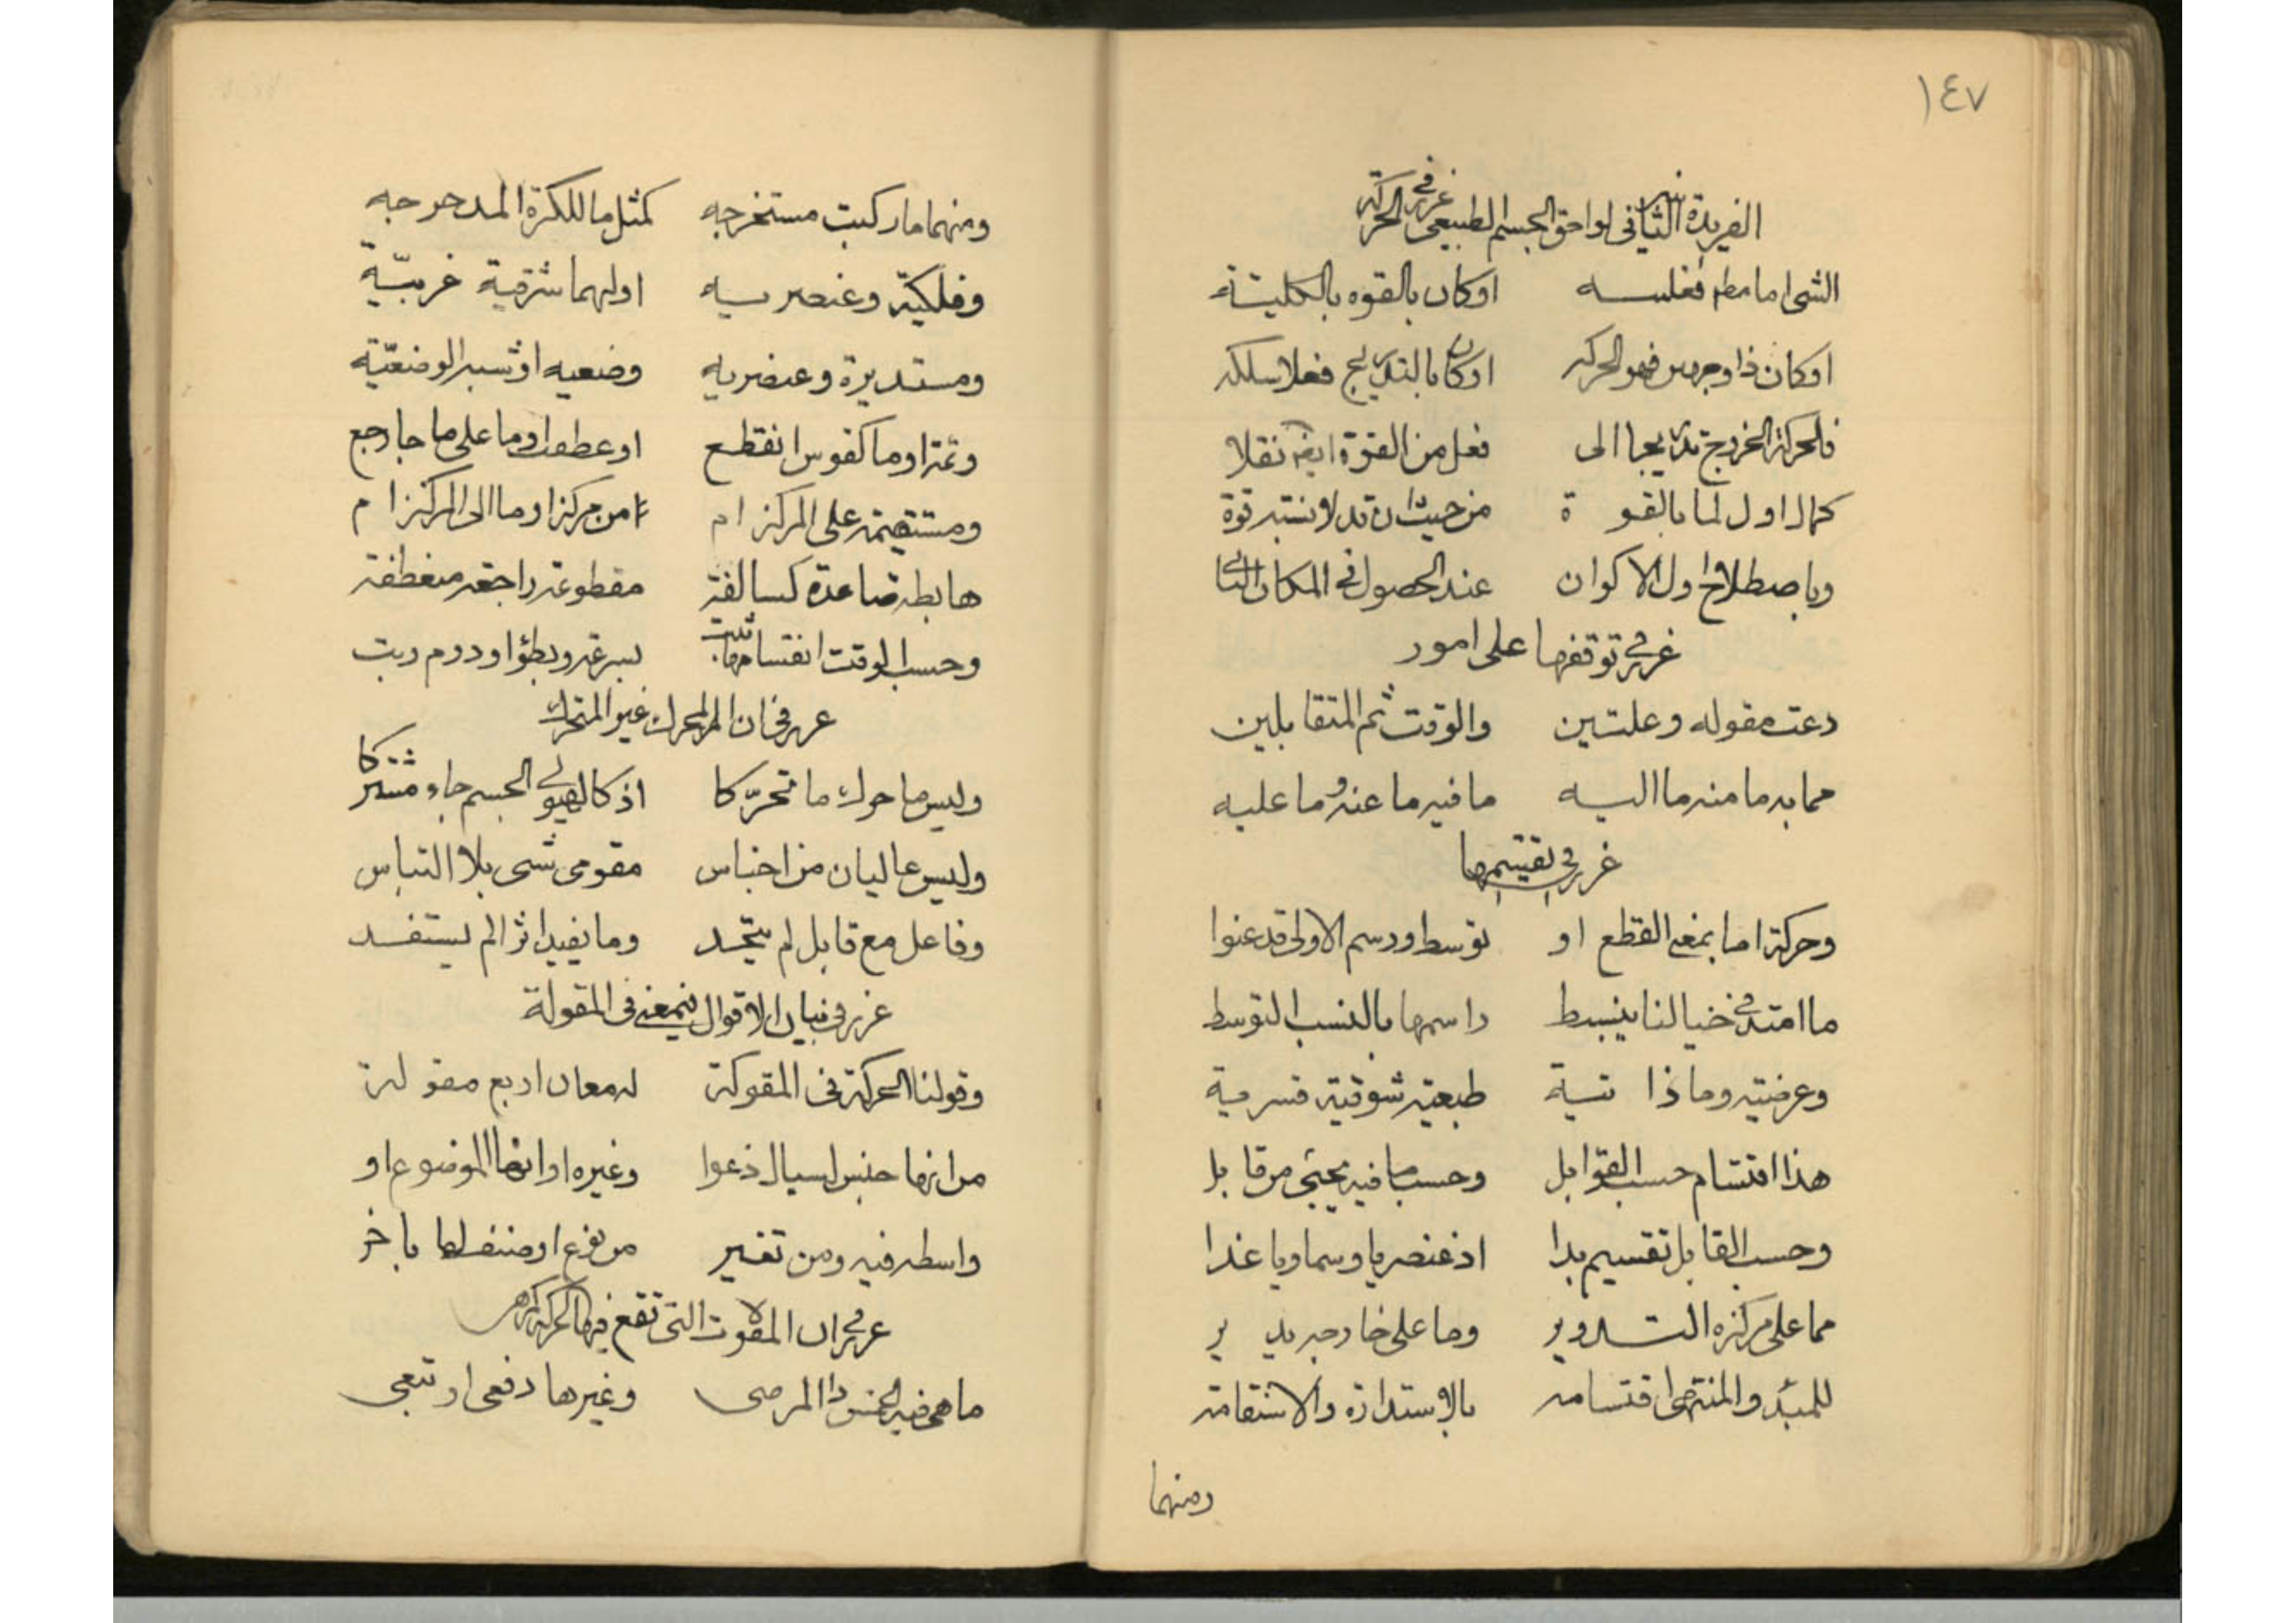 ١٤٧
الفريدة الثانية فى لواحق الجسم الطبيعى غرر فى الحركة
الشى اما مطم فعليه اوكان بالقوه بالكلية
اوكان ذا وجهين فهو الحركه اوكان بالتدريج فعلا سلكه
فالحركة الخروج تدريجا الى فعل من القوة ايضا نقلا
كمال اول لما بالقوة من حيث ان قد لابسته قوة
وباصطلاح اول الاكوان عند الحصول فى المكان الثانى
غرر فى توقفها على امور
دعت مقوله وعلتين والوقت ثم المتقابلين
مما به ما منه ما اليه ما فيه ما عنه وما عليه
غرر فى تقسيمها
وحركة اما بمعنى القطع او توسط ورسم الاولى قد عنوا
ما امتد فى خيالنا ينبسط راسمها بالنسب التوسط
وعرضية وما ذاتية طبعية شوقية قسرية
هذا اقتسام حسب القوابل وحسب ما فيه يجئى من قابل
وحسب القابل تقسيم بدا اذ عنصريا وسماويا غدا
مما على مركزه التدوير وما على خارجه يدير
للمبدء والمنتهى اقتسامه بالاستدارة والاستقامة
ومنهما
ومنهما ما ركبت مستخرجه كمثل ما للكرة المدحرجه
وفلكية وعنصريه اولهما شرقية غربيّة
ومستديرة وعنصريه وضعيه او شبه الوضعيّة
وتمت او ما كقوس انقطع او عطفت او ما على ما جا رجع
ومستقيمة على المركز ام من مركز او ما الى المركز ام
هابطه صاعدة كسالفة مقطوعة راجعة منعطفة
وحسب الوقت انقسامها ثبت بسرعة وبطؤ او دوم ربت
غرر فى ان المحرك غير المتحرك
وليس ما حرك ما تحرّكا اذ كالهيولى الجسم جاء مشتركا
وليس عاليان من اجناس مقومى شى بلا التباس
وفاعل مع قابل لم يتّحد وما يفيد اثرا لم يستفد
غرر فى بيان الاقوال فى معنى فى المقولة
وقولنا الحركة فى المقولة له معان اربع مقولة
من انها جنس لسيال دعوا وغيره او انها الموضوع او
واسطه فيه ومن تغير من نوع او صنف لها باخر
غرر فى ان المقولات التى تقع فيها الحركة كم هى
ما هى فيه الخمس ذا المرضى وغيرها دفعى او تبعى